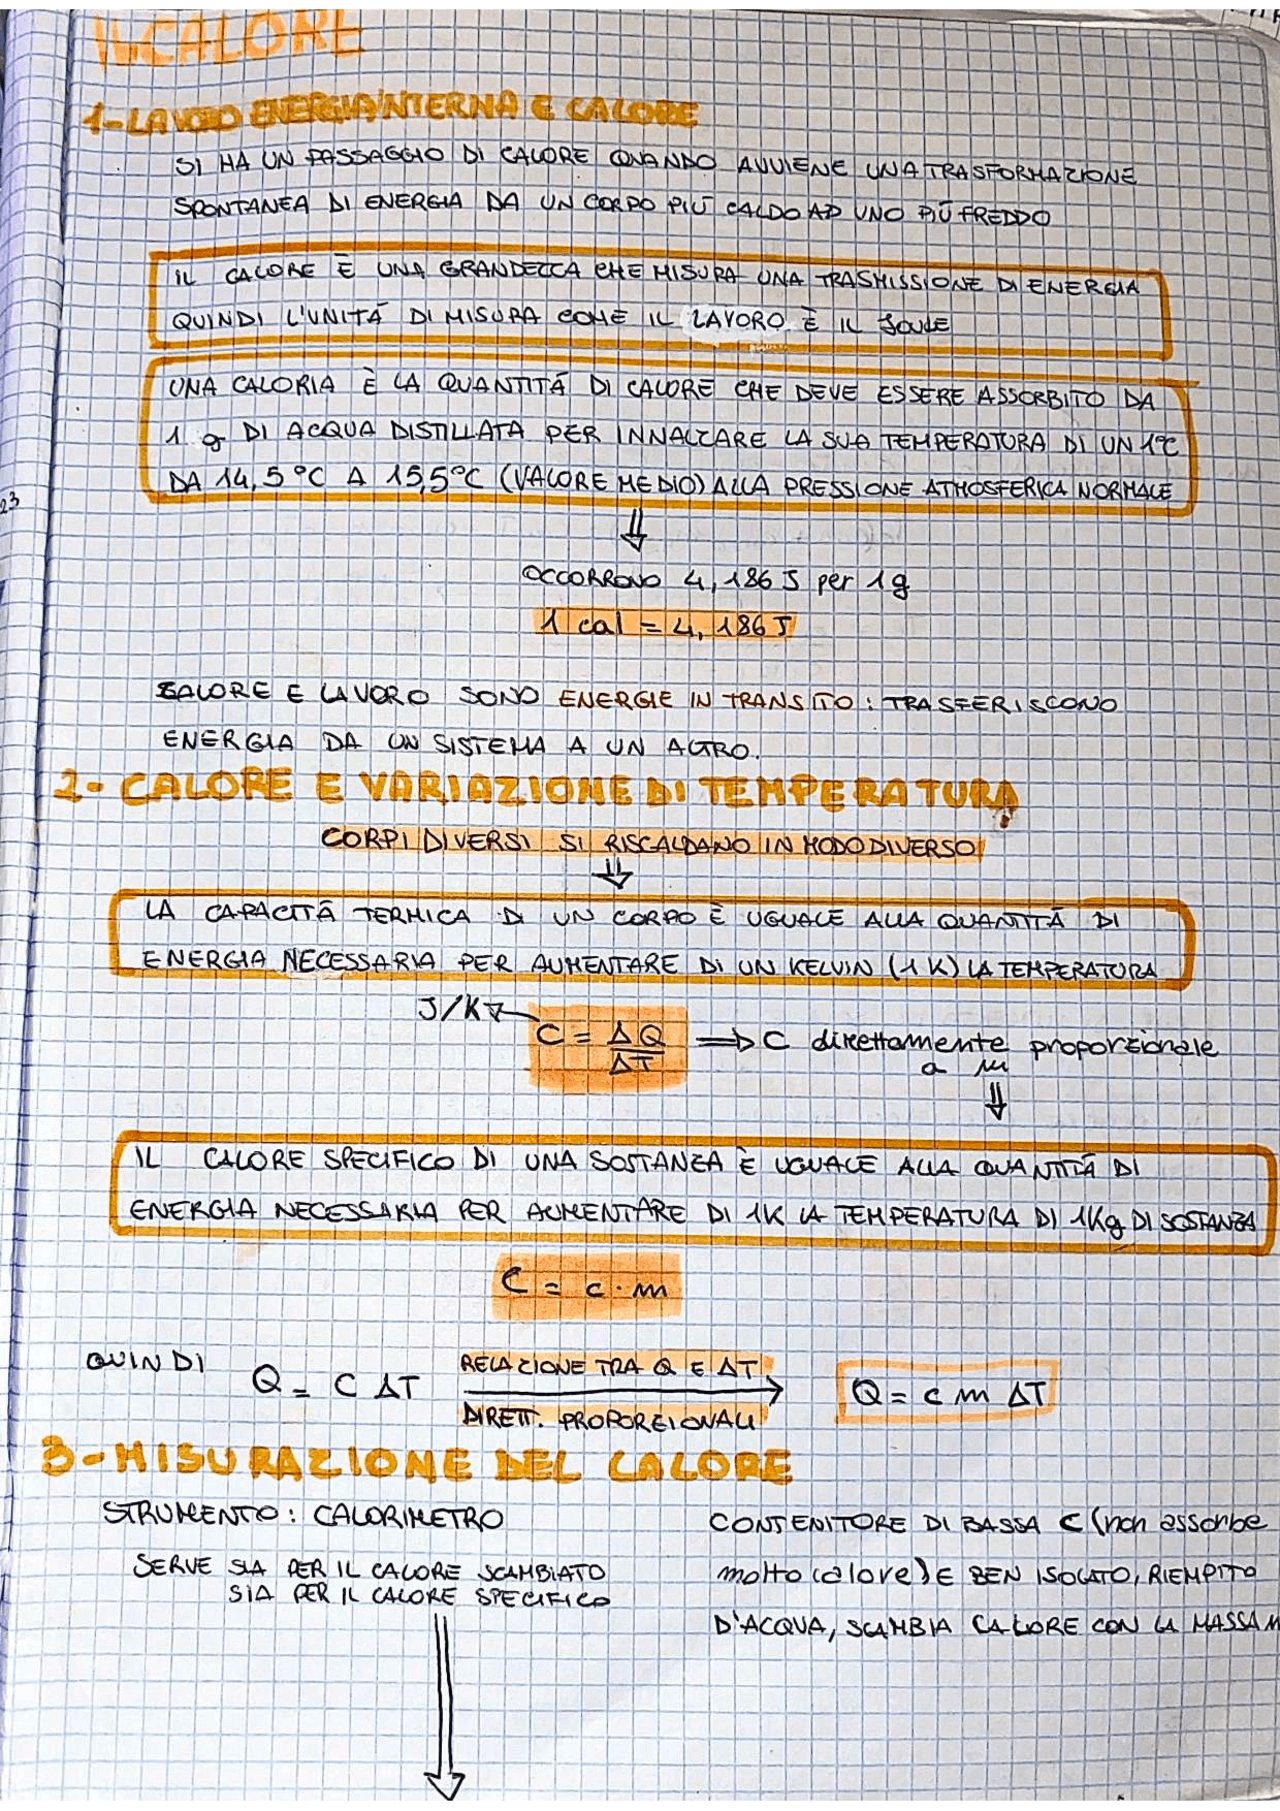 IL CALORE
1-LAVORO ENERGIA INTERNA E CALORE
SI HA UN PASSAGGIO DI CALORE QUANDO AVVIENE UNA TRASFORMAZIONE
SPONTANEA DI ENERGIA DA UN CORPO PIÙ CALDO AD UNO PIÙ FREDDO
IL CALORE È UNA GRANDEZZA CHE MISURA UNA TRASMISSIONE DI ENERGIA
QUINDI L'UNITÁ DI MISURA COME IL LAVORO È IL JOULE
UNA CALORIA È LA QUANTITÁ DI CALORE CHE DEVE ESSERE ASSORBITO DA
1 g DI ACQUA DISTILLATA PER INNALZARE LA SUA TEMPERATURA DI UN 1°C
DA 14,5°C A 15,5°C (VALORE MEDIO) ALLA PRESSIONE ATMOSFERICA NORMALE
23
⇓
OCCORRONO 4,186 J per 1g
1 cal = 4,186 J
CALORE E LAVORO SONO ENERGIE IN TRANSITO: TRASFERISCONO
ENERGIA DA UN SISTEMA A UN ALTRO.
2- CALORE E VARIAZIONE DI TEMPERATURA
CORPI DIVERSI SI RISCALDANO IN MODO DIVERSO
⇓
LA CAPACITÁ TERMICA DI UN CORPO È UGUALE ALLA QUANTITÁ DI
ENERGIA NECESSARIA PER AUMENTARE DI UN KELVIN (1 K) LA TEMPERATURA
J/K ← C = ΔQ/ΔT ⇒ C direttamente proporzionale
a m
⇓
IL CALORE SPECIFICO DI UNA SOSTANZA È UGUALE ALLA QUANTITÁ DI
ENERGIA NECESSARIA PER AUMENTARE DI 1K LA TEMPERATURA DI 1Kg DI SOSTANZA
C = c · m
QUINDI Q = C ΔT RELAZIONE TRA Q E ΔT → Q = c m ΔT
DIRETT. PROPORZIONALI
3-MISURAZIONE DEL CALORE
STRUMENTO: CALORIMETRO
SERVE SIA PER IL CALORE SCAMBIATO
SIA PER IL CALORE SPECIFICO
CONTENITORE DI BASSA C (non assorbe
molto calore) E BEN ISOLATO, RIEMPITO
D'ACQUA, SCAMBIA CALORE CON LA MASSA M
⇓